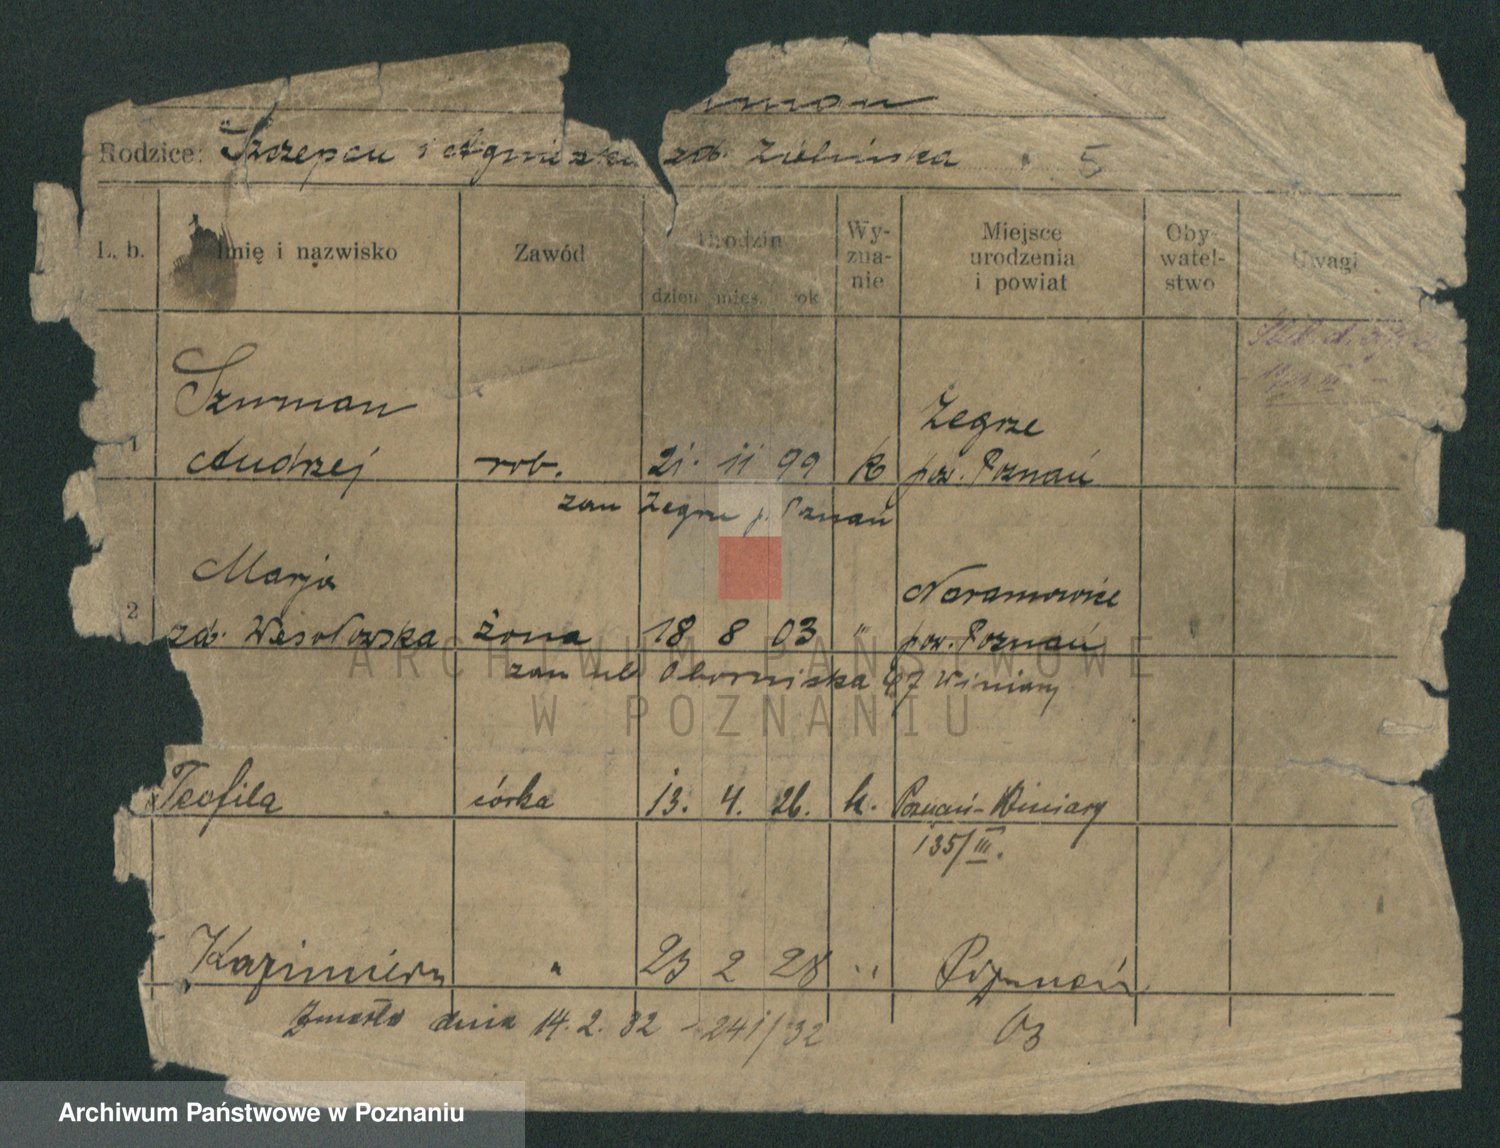 Rodzice: Szczepan i Agnieszka zd. Zielińska 5
L. b. Imię i nazwisko Zawód Urodzin dzień mies. rok Wy-zna-nie Miejsce urodzenia i powiat Oby-watel-stwo Uwagi
Szurman Zegrze
1 Andrzej rob. 21. 11 99 k pow. Poznań
zam Zegrze p. Poznań
Marja Naramowice
2 zd. Wesołowska żona 18 8 03 " pow. Poznań
zam ul Obornicka 47 Winiary
Teofila córka 13. 4. 26. k. Poznań-Winiary
135/III.
Kazimiera " 23 2 28 " Poznań
Zmarła dnia 14.2.32 - 241/32
ARCHIWUM PAŃSTWOWE
W POZNANIU
Archiwum Państwowe w Poznaniu